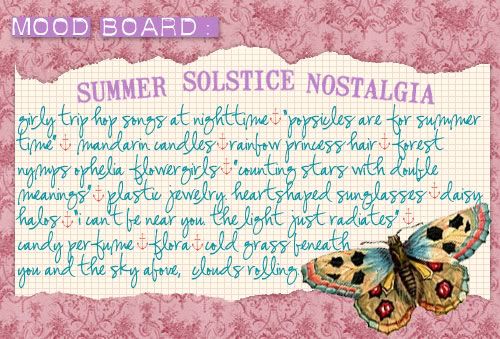 MOOD BOARD :
SUMMER SOLSTICE NOSTALGIA
girly trip hop songs at nighttime⚓"popsicles are for summer
time"⚓ mandarin candles⚓rainbow princess hair⚓forest
nymps ophelia flowergirls⚓"counting stars with double
meanings"⚓plastic jewelry, heartshaped sunglasses ⚓daisy
halos⚓"i can't be near you, the light just radiates"⚓
candy perfume⚓flora⚓cold grass beneath
you and the sky above, clouds rolling